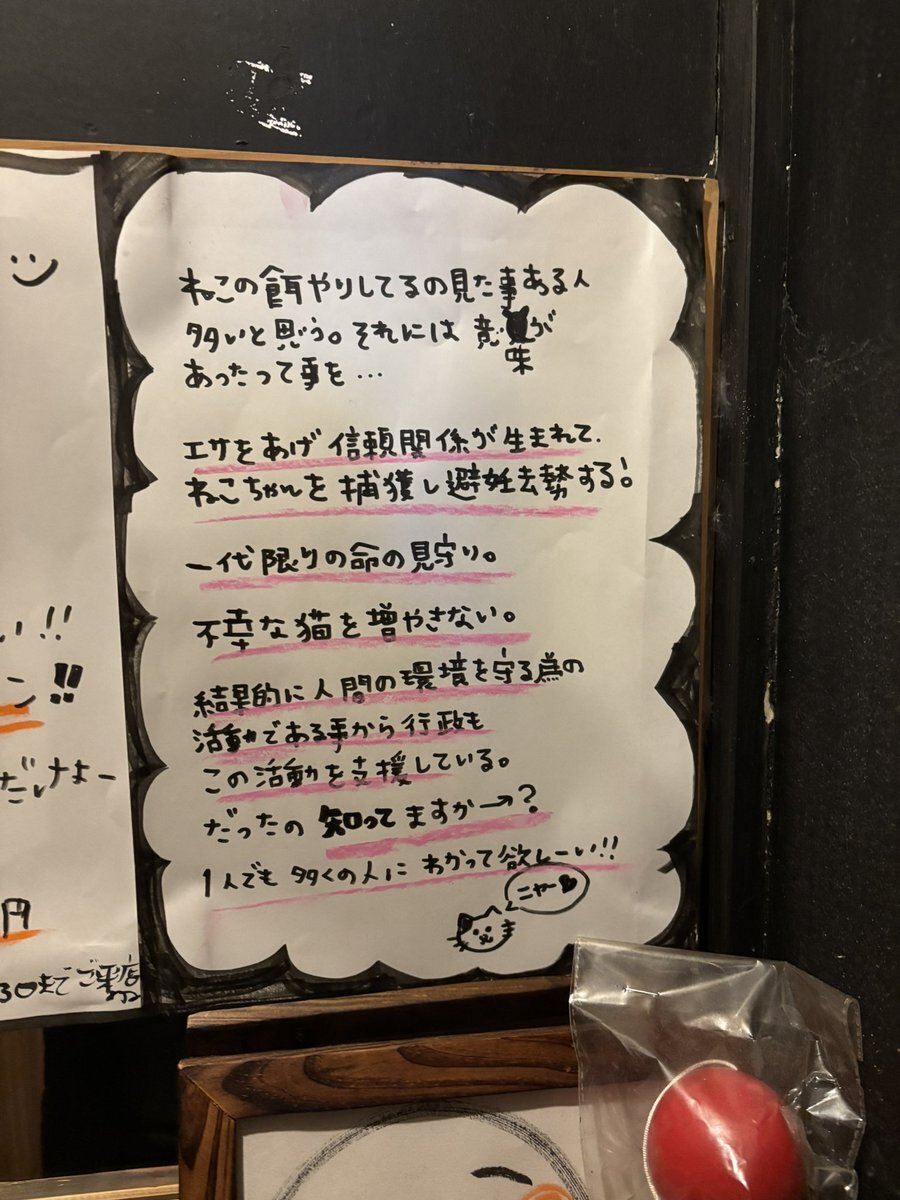 い!!
ン!!
だけよー
円
30まで ご来店
ねこの餌やりしてるの見た事ある人
多いと思う。それには 意味が
あったって事を…
エサをあげ 信頼関係が生まれて、
ねこちゃんを 捕獲し避妊去勢する!
一代限りの命の見守り。
不幸な猫を増やさない。
結果的に人間の環境を守る為の
活動である事から行政も
この活動を支援している。
だったの 知ってますか→?
1人でも 多くの人に わかって欲しーい!!
ニャー